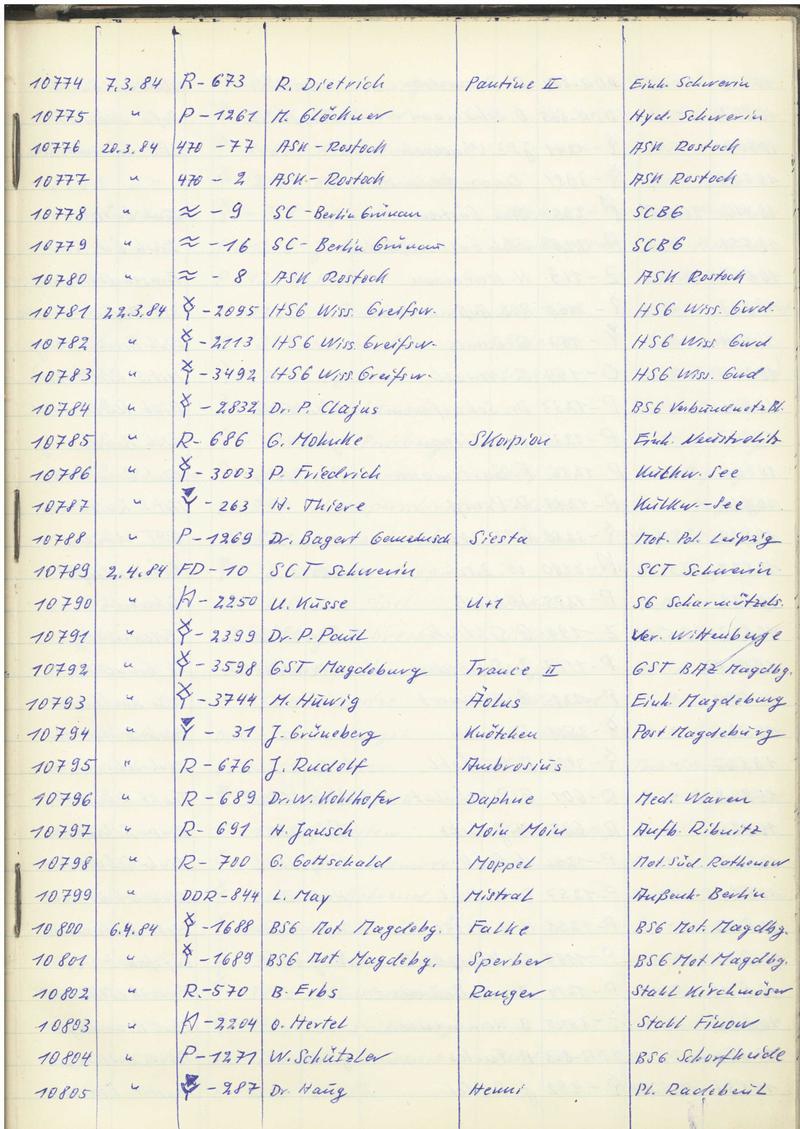 10774 7.3.84 R-673 R. Dietrich Pantine II Einh. Schwerin
10775 " P-1261 M. Glöckner Hyd. Schwerin
10776 20.3.84 470-77 ASK-Rostock ASK Rostock
10777 " 470-2 ASK-Rostock ASK Rostock
10778 " ≈-9 SC-Berlin Grünau SCBG
10779 " ≈-16 SC-Berlin Grünau SCBG
10780 " ≈-8 ASK Rostock ASK Rostock
10781 22.3.84 -2095 HSG Wiss. Greifsw. HSG Wiss. Gwd.
10782 " -2113 HSG Wiss. Greifsw. HSG Wiss Gwd
10783 " -3492 HSG Wiss. Greifsw. HSG Wiss. Gwd
10784 " -2832 Dr. P. Clajus BSG Verbundnetz Bl.
10785 " R-686 G. Mohnke Skorpion Einh. Neustrelitz
10786 " -3003 P. Friedrich Kulkw. See
10787 " -263 H. Thiere Kulkw.-See
10788 " P-1269 Dr. Bagert Siesta Mot. Pol. Leipzig
10789 2.4.84 FD-10 SCT Schwerin SCT Schwerin
10790 " -2250 U. Kusse U+1 SG Scharmützels.
10791 " -2399 Dr. P. Paul Ver. Wittenberge
10792 " -3598 GST Magdeburg Trance II GST BAZ Magdbg.
10793 " -3744 M. Huwig Äolus Einh. Magdeburg
10794 " -31 J. Grüneberg Knötchen Post Magdeburg
10795 " R-676 J. Rudolf Ambrosius
10796 " R-689 Dr. W. Kohlhofer Daphne Med. Waren
10797 " R-691 H. Jansch Moin Moin Aufb. Ribnitz
10798 " R-700 G. Gottschald Moppel Mot. Süd. Rathenow
10799 " DDR-844 L. May Mistral Außenh. Berlin
10800 6.4.84 -1688 BSG Mot Magdebg. Falke BSG Mot. Magdbg.
10801 " -1689 BSG Mot Magdebg. Sperber BSG Mot Magdbg.
10802 " R-570 B. Erbs Ranger Stahl Kirchmöser
10803 " -2204 O. Hertel Stahl Finow
10804 " P-1271 W. Schützler BSG Schorfheide
10805 " -287 Dr. Haug Henni Pl. Radebeul